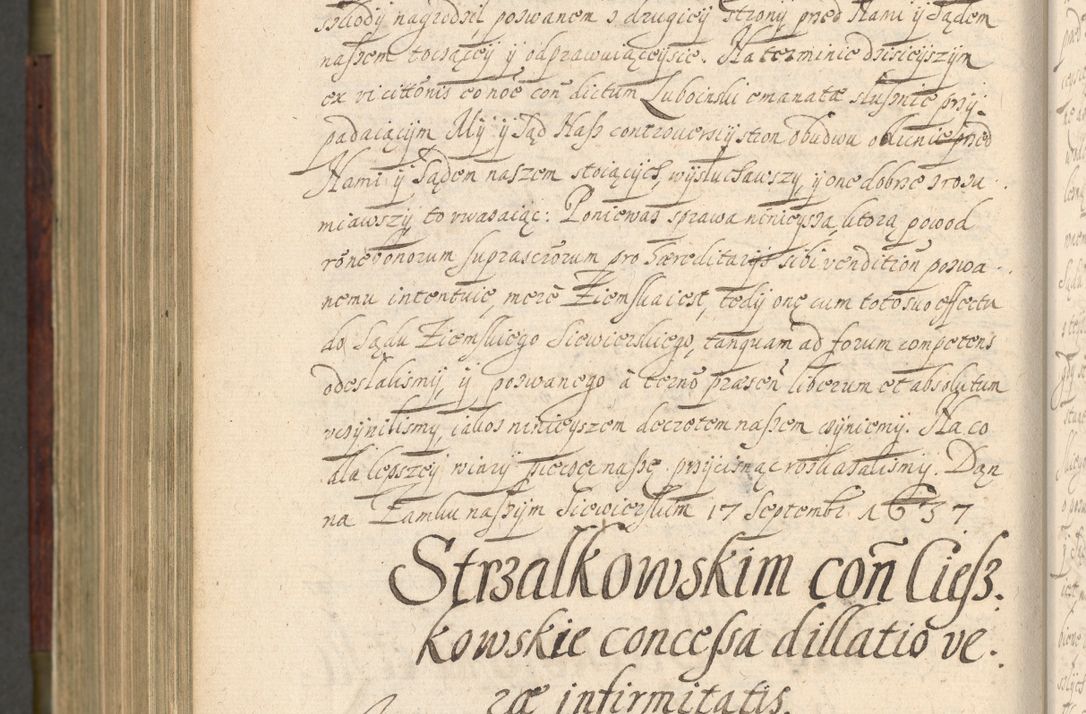 szkody nagrodził, poswanem z drugiey strony pred Nami y Sądem
naszem toczącey y odprawuiąceysie. Na terminie dzisieyszym
ex vi cittonis eo noe con dictum Luboinski emanatæ słusznie przy
padaiącym My y Sąd Nasz controversiy stron obudwu oblicnie pred
Nami y Sądem naszem stoiących, wysłuchawszy, y one dobrze zrozu
miawszy to vwazaiąc: Poniewaz sprawa ninieysza, ktorą powod
rone bonorum suprascriorum pro hæreditarys sibi vendition poswa
nemu intentuie, mere Ziemska iest, tedy onę cum toto suo effectu
do Sądu Ziemskiego Siewierskiego, tanquam ad forum competens
odesłalismy, y poswanego à terno præsen liberum et absolutum
vczynilismy, iakos ninieyszem decretem naszem czyniemy. Na co
dla lepszey wiary pieczęc naszę przycisnąc roskazalismy. Dan
na Zamku naszym Siewierskim 17 Septembr 1637
Strzalkowskim con Ciesz.
kowskie concessa dillatio ve.
ræ infirmitatis.